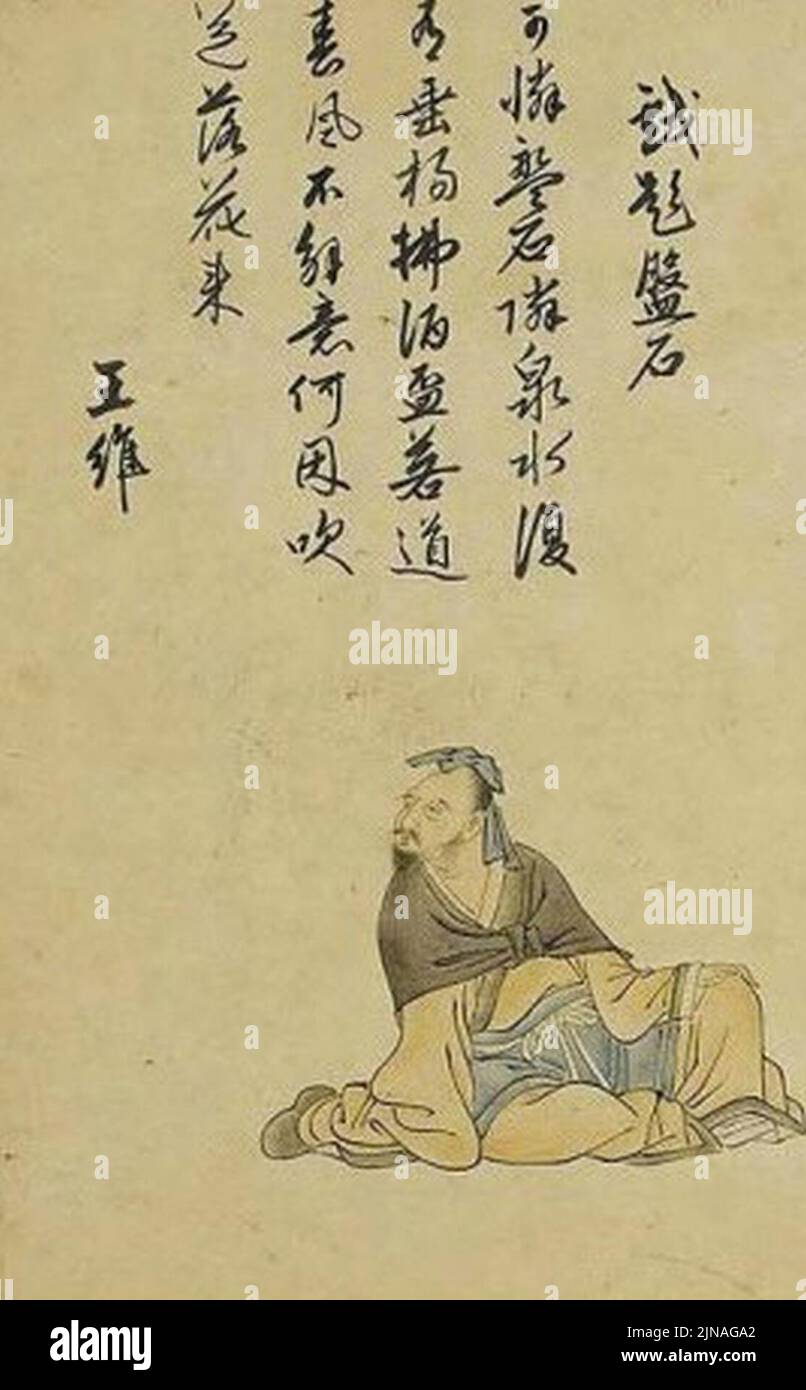 戲題盤石
可憐盤石隣泉水復
有垂楊拂酒盃若道
春風不解意何因吹
送落花来
王維
alamy
alamy
alamy
alamy
Image ID: 2JNAGA2
www.alamy.com